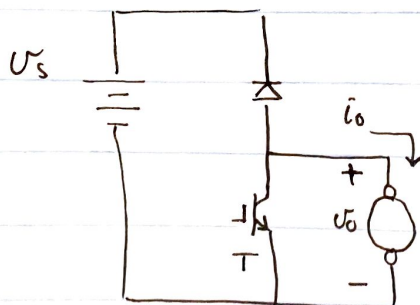 Vs
io
+
vo
T
−